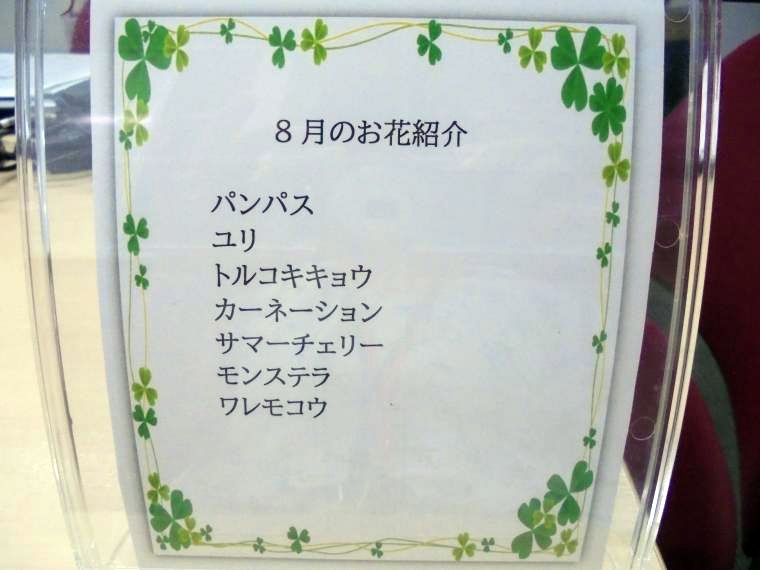 ８月のお花紹介
パンパス
ユリ
トルコキキョウ
カーネーション
サマーチェリー
モンステラ
ワレモコウ